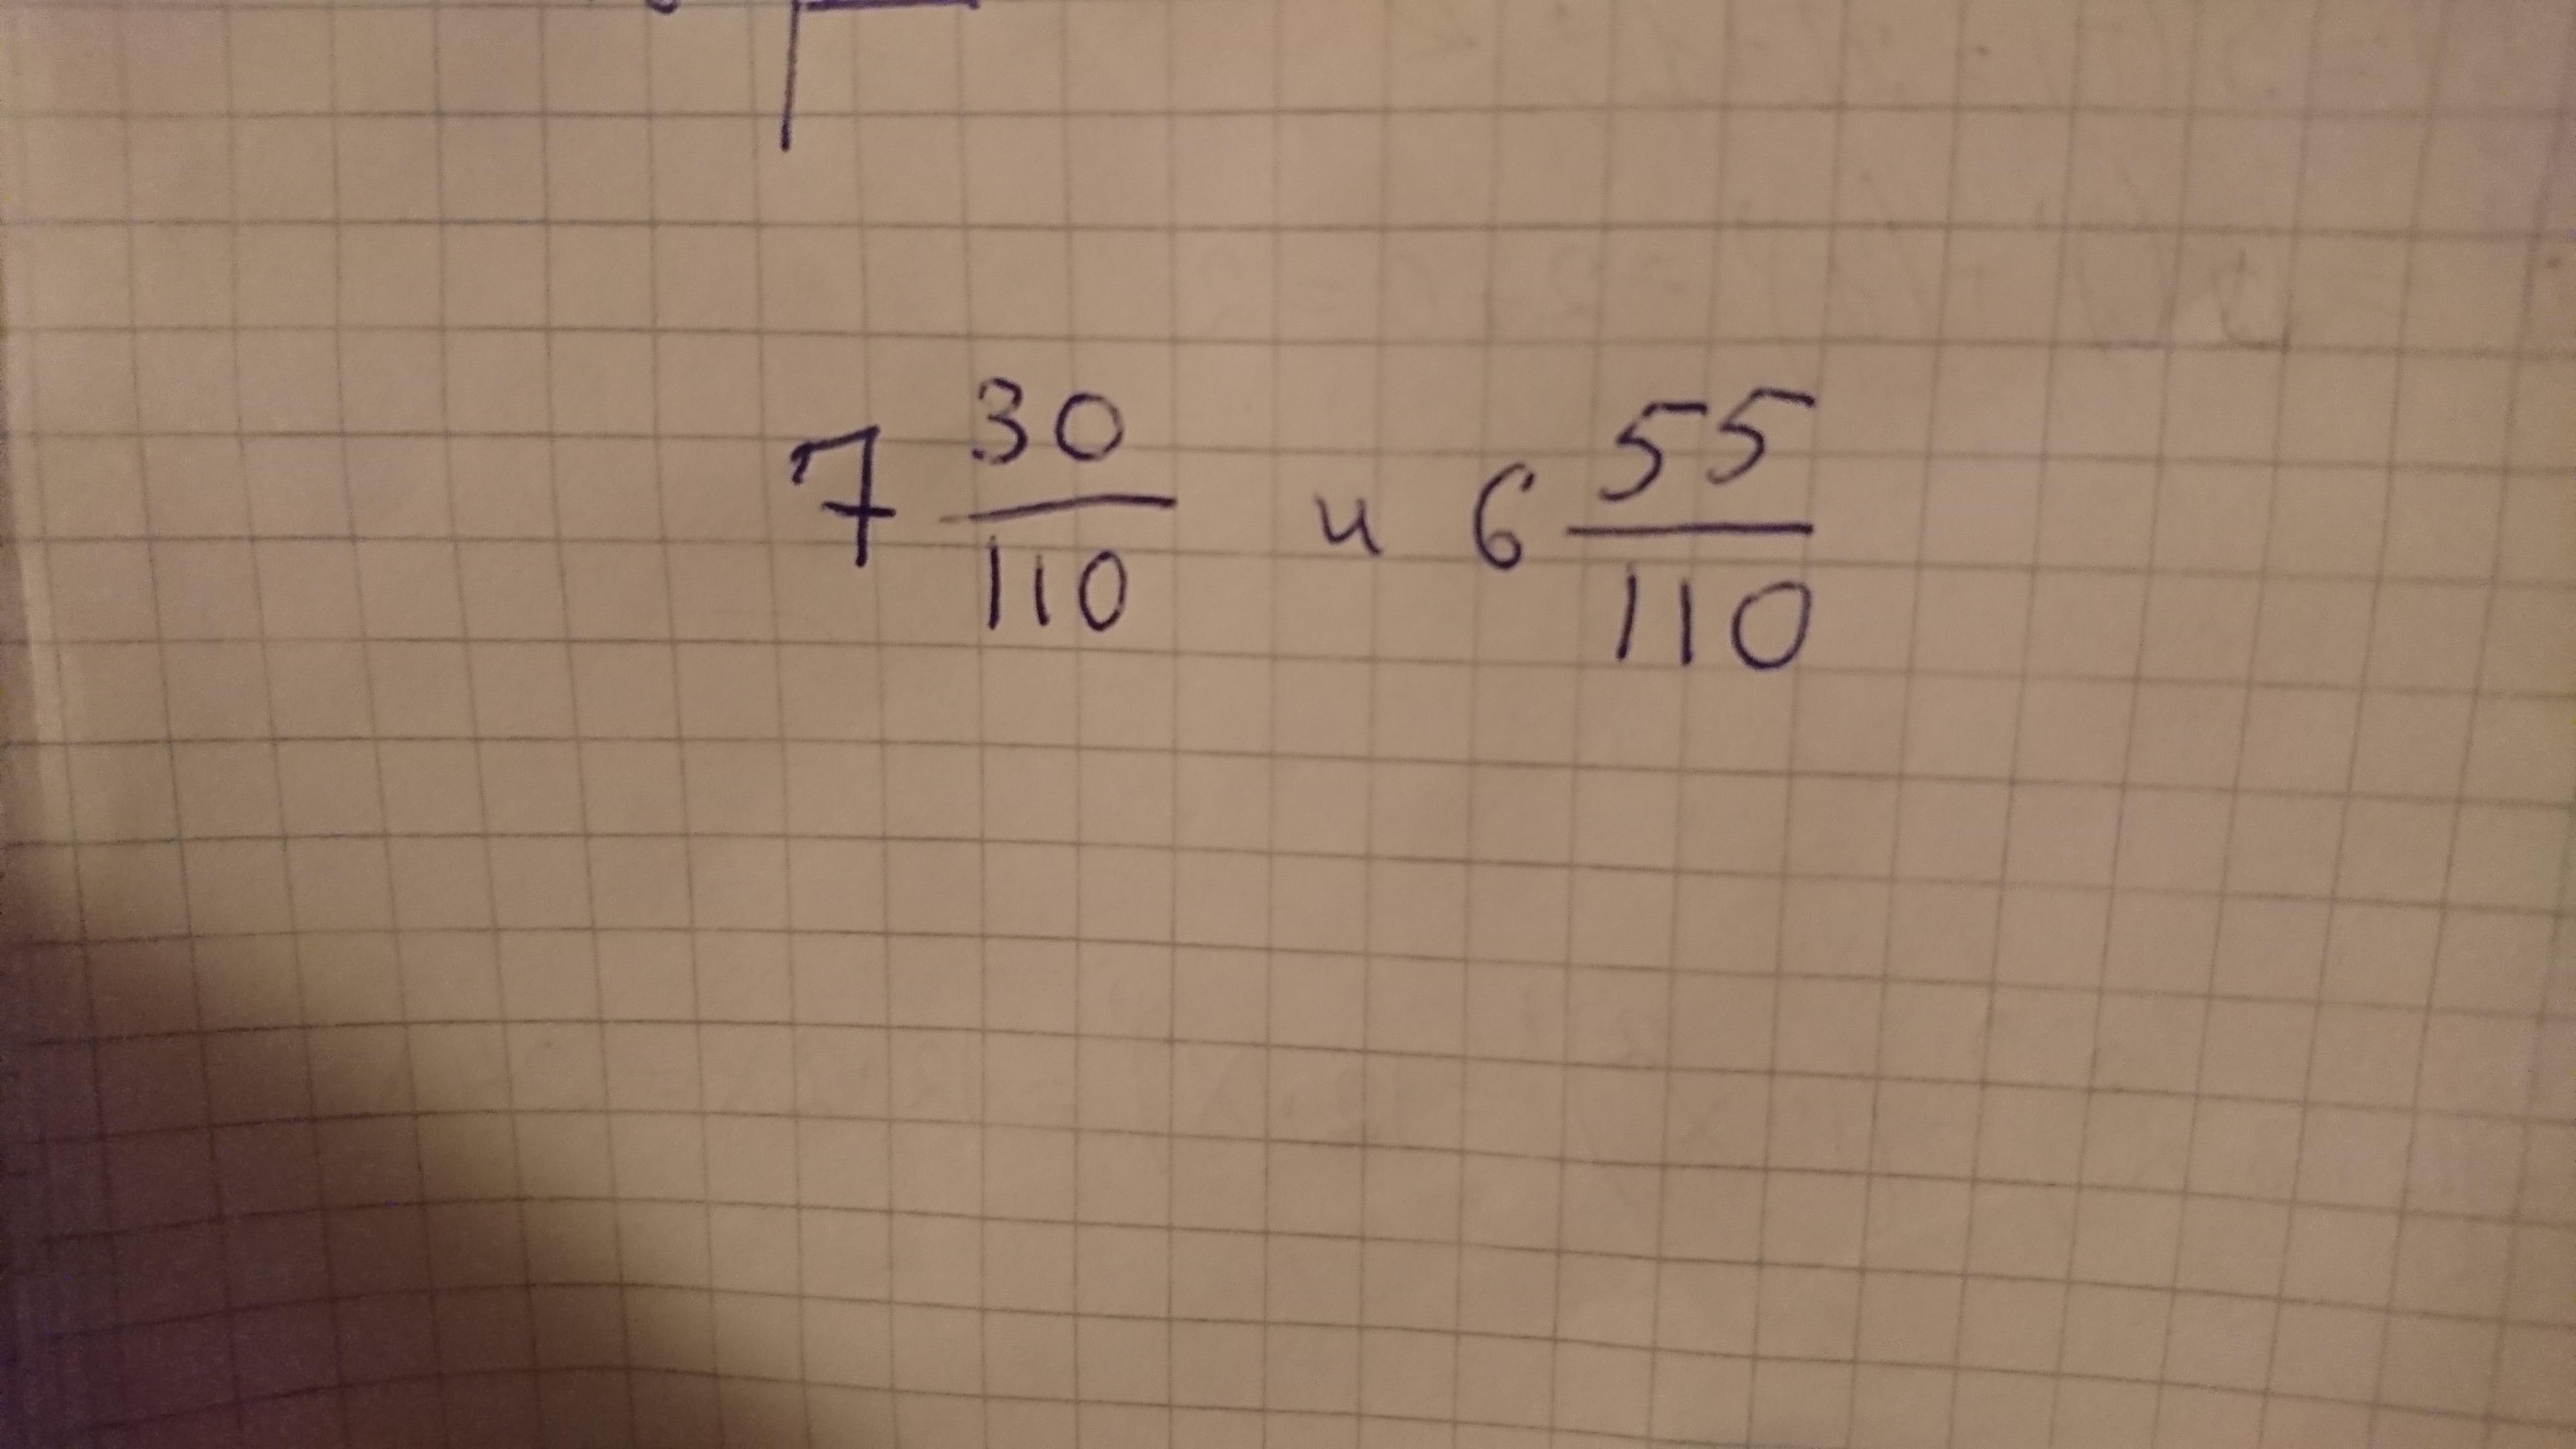 7 30/110 и 6 55/110